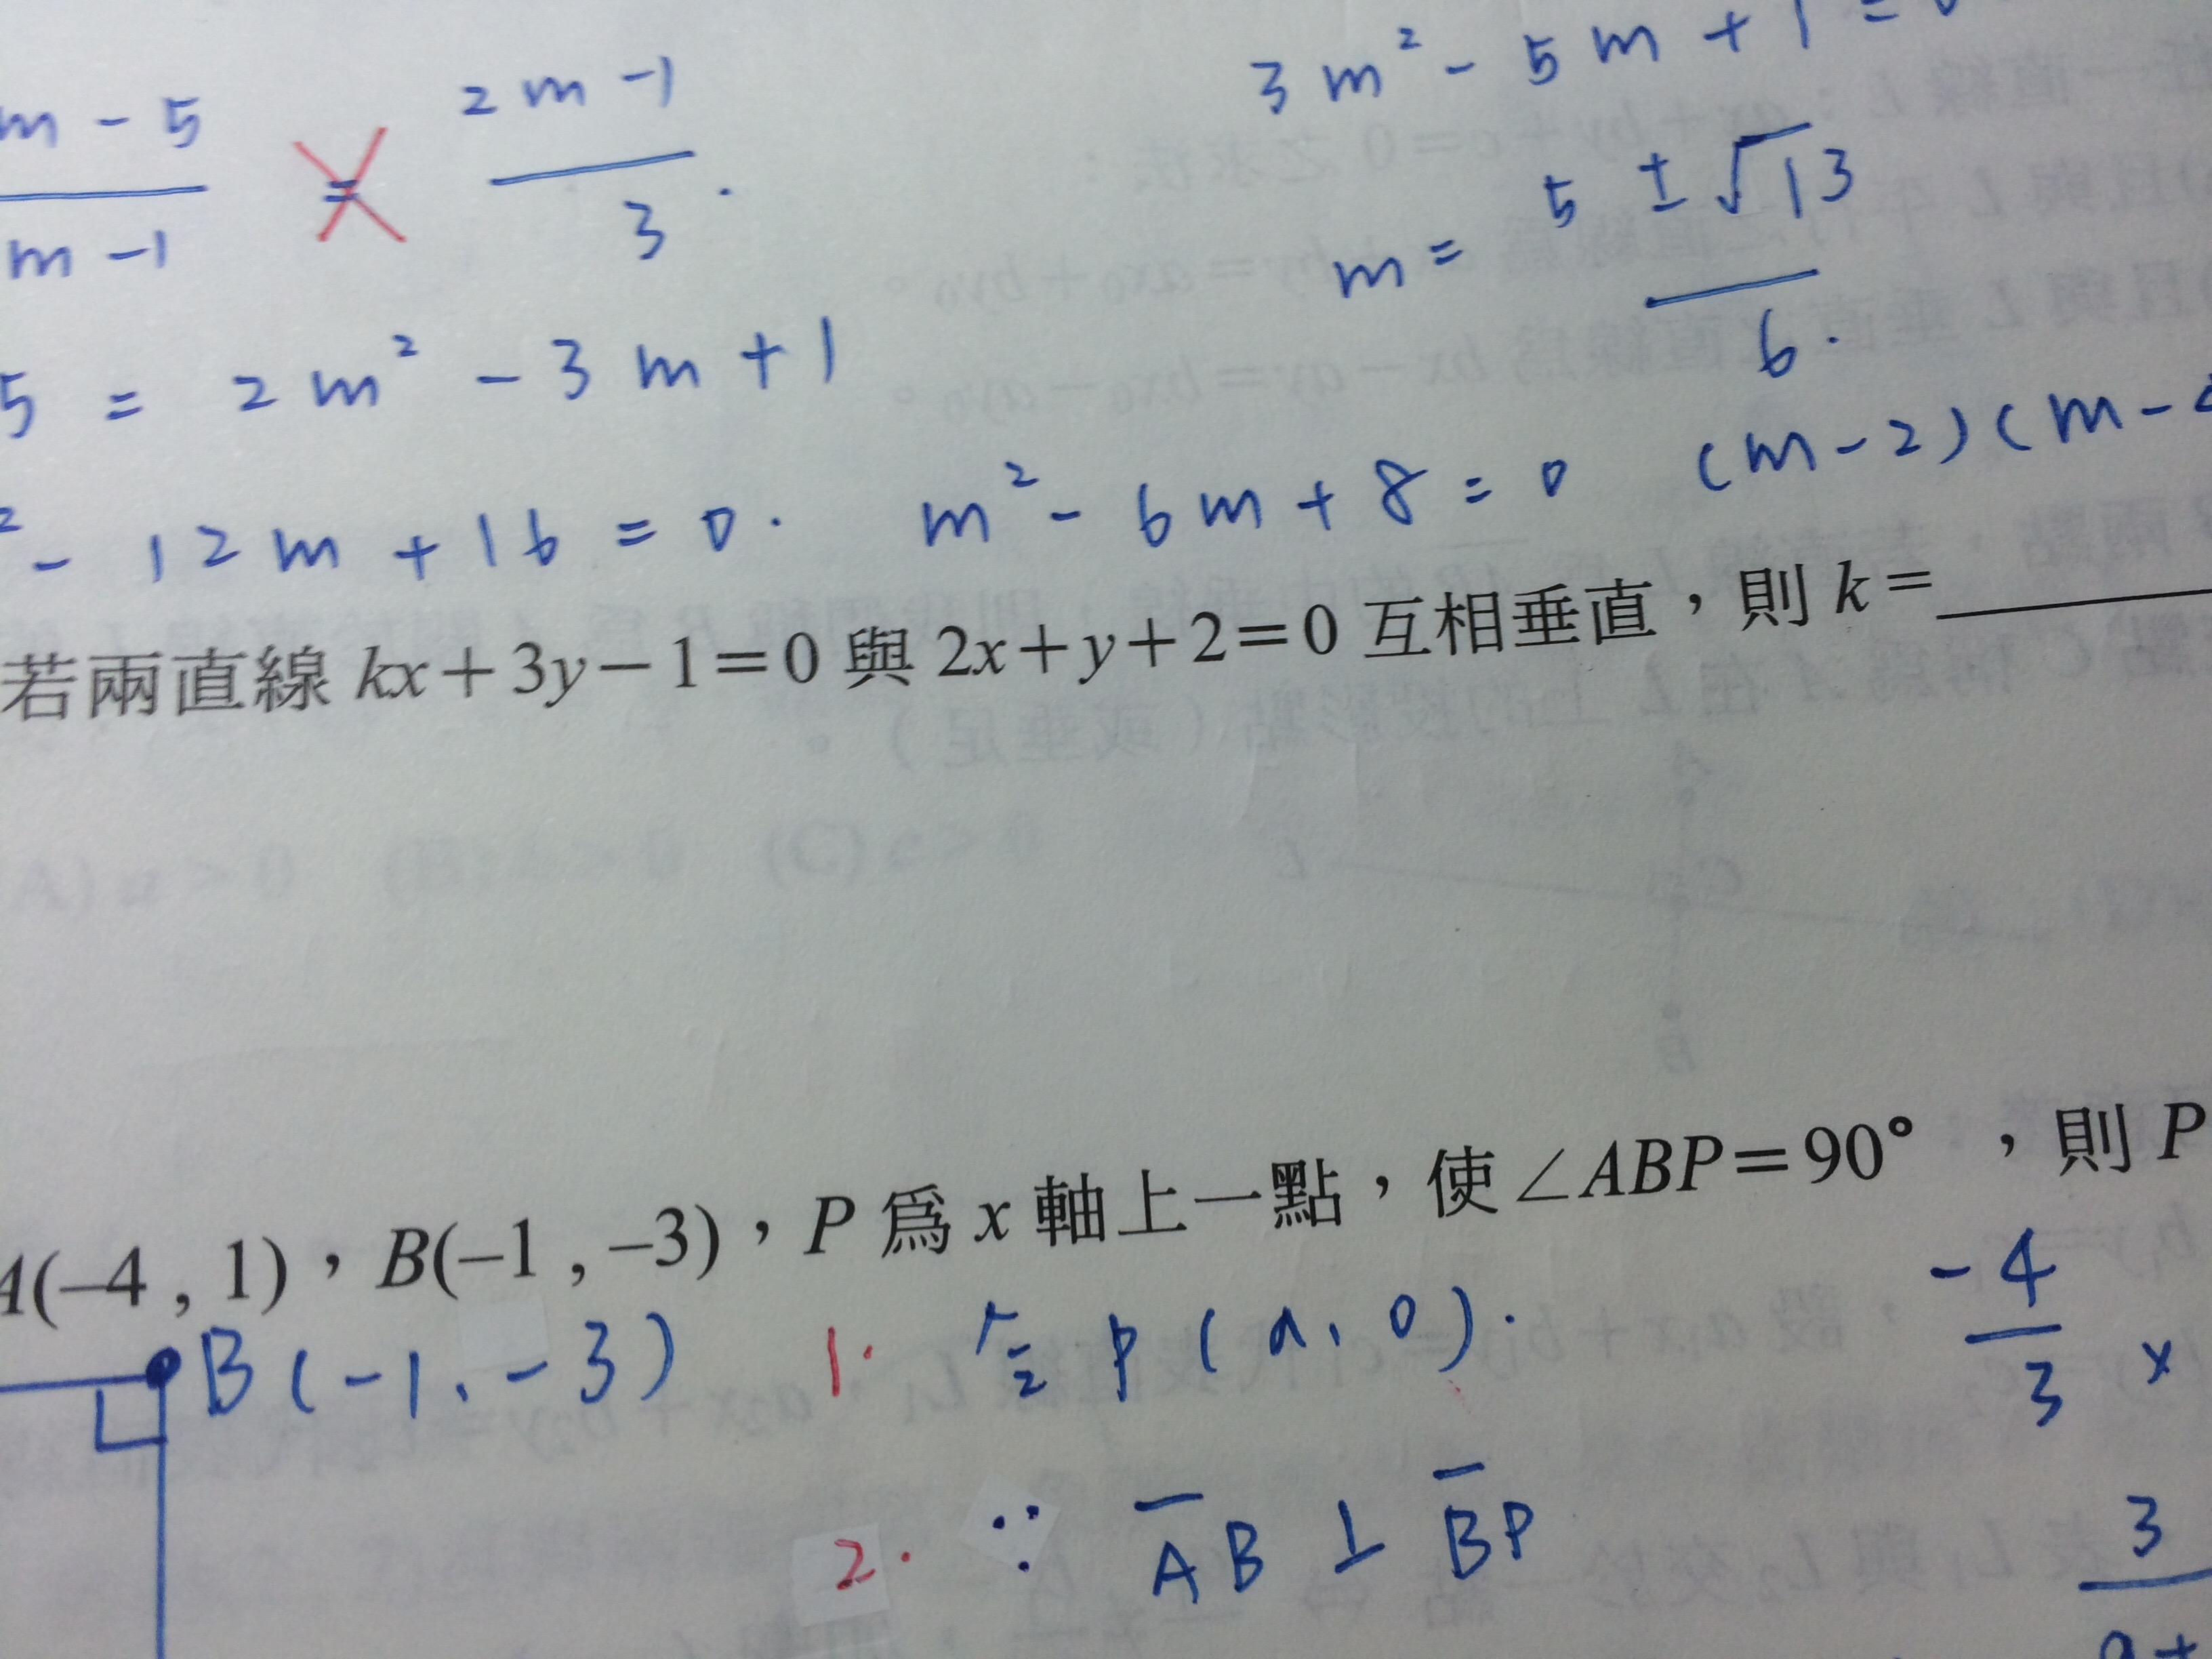 m - 5 / m - 1 = 2m - 1 / 3 .
3m² - 5m + 1 =
m = 5 ± √13 / 6 .
5 = 2m² - 3m + 1
² - 12m + 16 = 0 . m² - 6m + 8 = 0 (m - 2)(m -
若兩直線 kx+3y−1=0 與 2x+y+2=0 互相垂直，則 k=
A(–4 , 1)，B(–1 , –3)，P 爲 x 軸上一點，使∠ABP=90° ，則 P
B(-1, -3) 1. P(a, 0). -4 / 3 ×
2. ∵ AB ⊥ BP 3